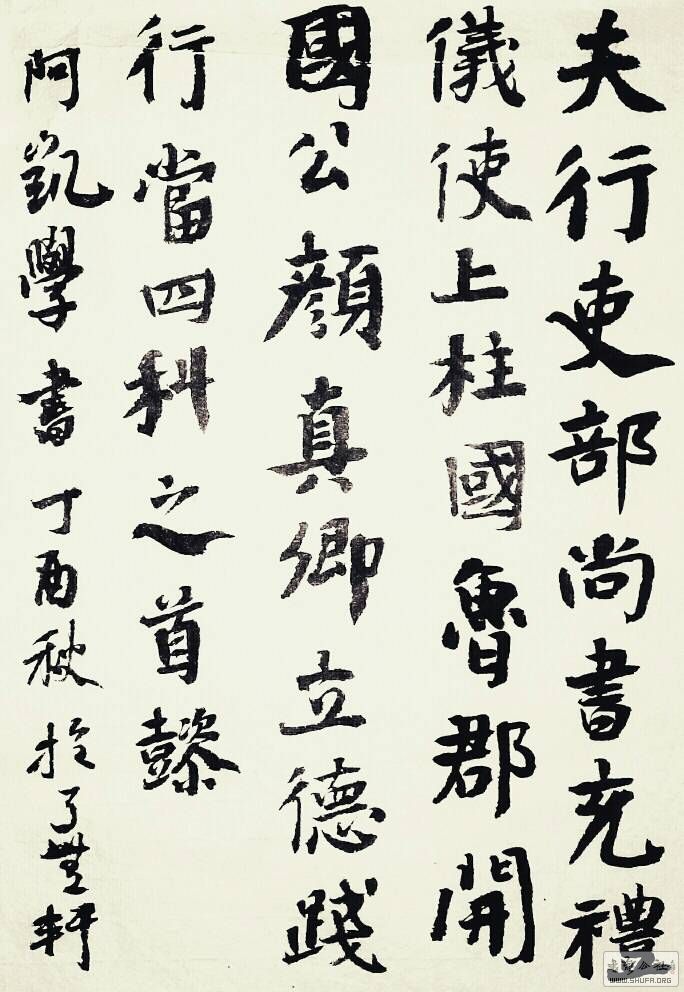 夫行吏部尚書充禮
儀使上柱國魯郡開
國公顏真卿立德踐
行當四科之首懿
阿凱學書丁酉秋於了無軒
WWW.SHUFA.ORG